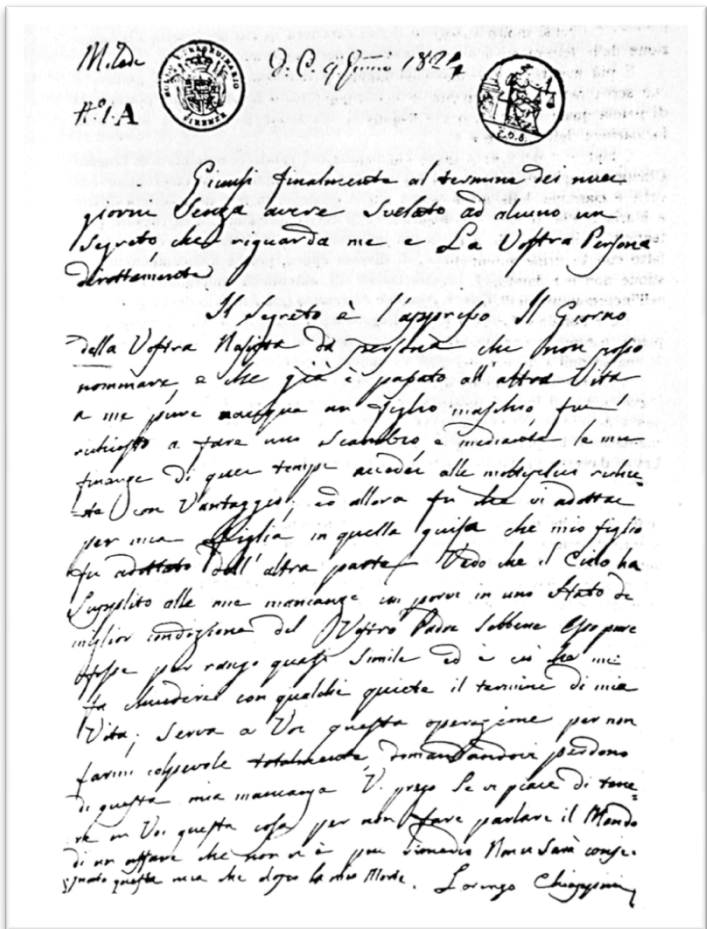 Milady
J. C. 9 Giugno 1821
BOLLO STRAORDINARIO
FIRENZE
C.O.S.
N.º 1.A
Giunsi finalmente al termine dei miei
giorni Senza avere Svelato ad alcuno un
Segreto che riguarda me e La Vostra Persona
direttamente
Il Segreto è l'appresso Il Giorno
della Vostra Nascita da persona che non posso
nominare e che già è passato all'altra Vita
a me pure nacque un figlio maschio fui
richiesto a fare uno Scambio e mediante le mie
finanze di quei tempi accedei alle moltiplici richie=
ste con Vantaggio; ed allora fu che vi adottai
per mia figlia in quella guisa che mio figlio
fu adottato dall'altra parte Vedo che il Cielo ha
Supplito alle mie mancanze con porvi in uno Stato di
miglior condizione del Vostro Padre Sebbene esso pure
fosse per rango quasi Simile ed è ciò che mi
fa chiudere con qualche quiete il termine di mia
Vita; Serva a Voi questa operazione per non
farmi colpevole totalmente, domandandovi perdono
di questa mia mancanza V. prego Se vi piace di tene=
re in Voi questa cosa per non fare parlare il Mondo
di un affare che non vi è più rimedio Non vi Sarà conse=
gnata questa mia che dopo la mia Morte. Lorenzo Chiappini